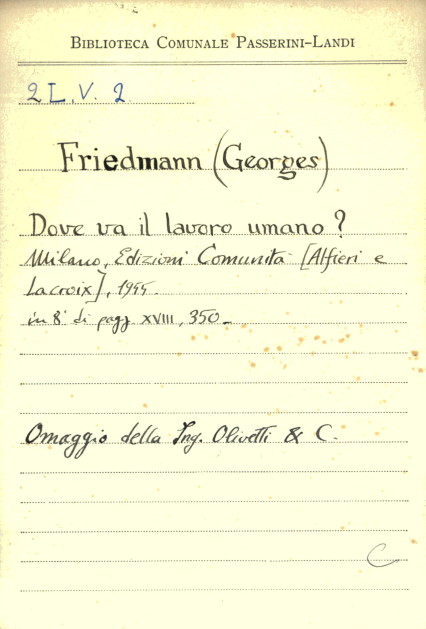 BIBLIOTECA COMUNALE PASSERINI-LANDI
2 L. V. 2
Friedmann (Georges)
Dove va il lavoro umano?
Milano, Edizioni Comunità [Alfieri e
Lacroix], 1955.
in 8° di pagg XVIII, 350.
Omaggio della Ing. Olivetti & C.
C